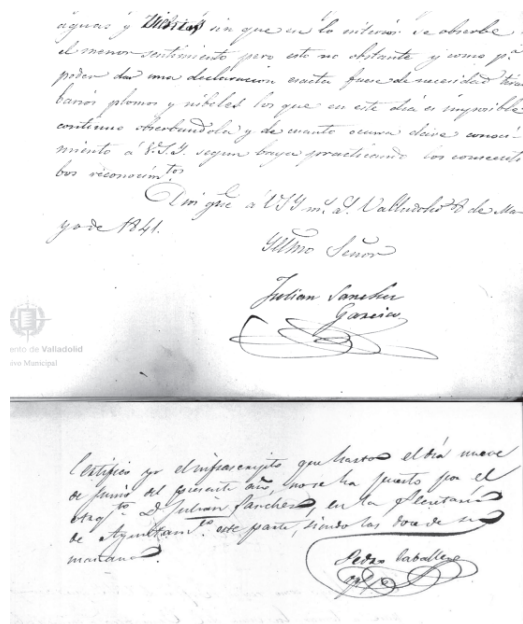 aguas y sin que en lo interior se observe
el menor sentimiento pero esto no obstante y como pª
poder dar una declaracion exacta fuese de necesidad tirar
barios plomos y nibeles los que en este dia es imposible
continuo oberbandola y de cuanto ocurra daré conoci-
miento á V.S.Y. segun baya practicando los consecuti-
bos reconocimtos
Dios gue á VSY ms as Valladolid 8 de Ma-
yo de 1841.
Yllmo Señor
Julian Sanchez
Garcia
ento de Valladolid
ivo Municipal
Certifico yo el infrascripto que hasta el dia nueve
de Junio del presente año, no se ha puesto por el
Arqto D. Julian Sanchez, en la Secretaria
de Ayuntamto este parte, siendo las doce de su
mañana.
Pedro Caballero